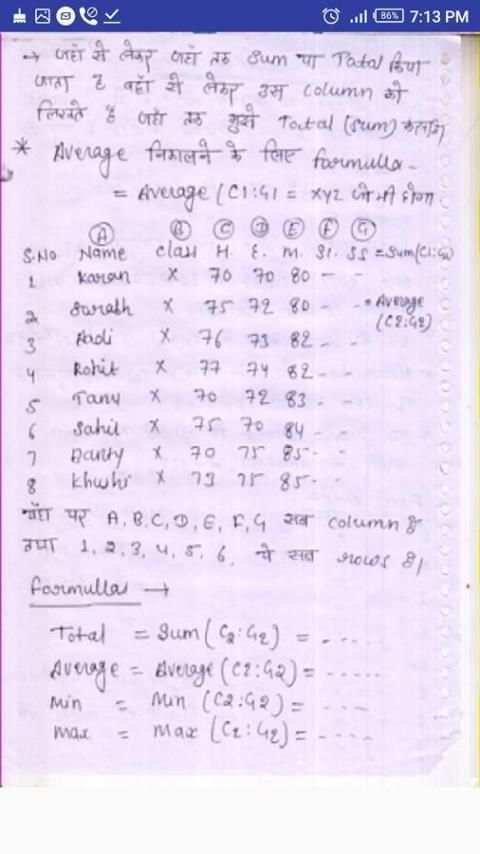 86% 7:13 PM
→ जहाँ से लेकर जहाँ तक Sum या Total किया
जाता है वहाँ से लेकर उस column को
लिखते हैं जहाँ तक मुझे Total (Sum)
* Average निकालने के लिए formulla -
= Average (C1:G1 = XYZ जो भी होगा
A B C D E F G
S.No Name Class H. E. M. SS = Sum(C1:G1)
1 Karan X 70 70 80 - -
2 Sarabh X 75 72 80 - - = Average
(C2:G2)
3 Aadi X 76 73 82 - -
4 Rohit X 77 74 82 - -
5 Tany X 70 72 83 - -
6 Sahil X 75 70 84 - -
7 X 70 75 85 - -
8 Khushi X 73 75 85 - -
यहाँ पर A, B, C, D, E, F, G सब column है
तथा 1, 2, 3, 4, 5, 6, ये सब rows है।
formullas →
Total = Sum (C2:G2) = - - - - -
Average = Average (C2:G2) = - - - - -
Min = Min (C2:G2) = - - - -
Max = Max (C2:G2) = - - - - -